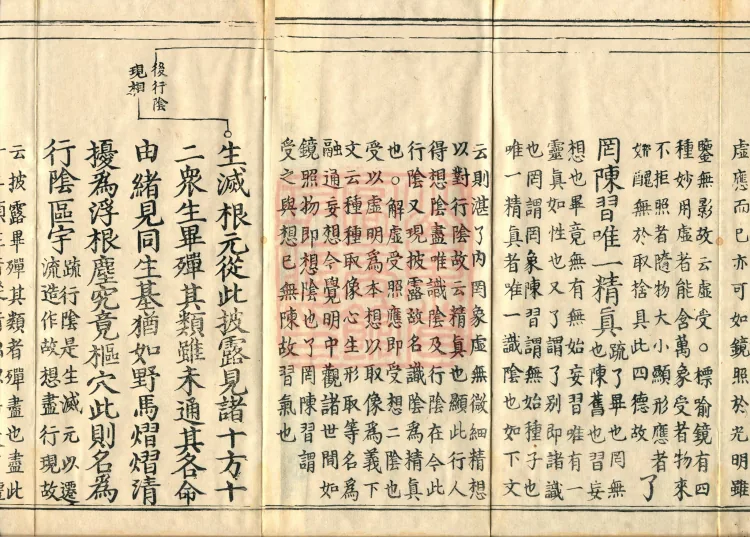 虛應而已亦可如鏡照於光明雖
鑒無影故云虛受。標喻鏡有四
種妙用虛者能含萬象受者物來
不拒照者隨物大小顯形應者
妍醜無於取捨具此四德故
了
罔陳習唯一精真
疏了畢也罔無
也陳舊也習妄
想也畢竟無有無始妄習唯有一
靈真如性也又了謂了別即諸識
也罔謂罔象陳習謂無始種子也
唯一精真者唯一識陰也如下文
云則湛了內罔象虛無微細精想
以對行陰故云精真也顯此行人
得想陰盡唯識陰及行陰在今此
行陰又現披露故名識陰爲精真
也。解虛受照應即受想二陰也
受以虛明爲本想以取像爲義下
文云種種取像心生形取等名爲
融通妄想今覺明中觀諸世間如
鏡照物即想陰也了罔陳習謂
受之與想已無陳故習氣也
後行陰
現相
生滅根元從此披露見諸十方十
二衆生畢殫其類雖未通其各命
由緒見同生基猶如野馬熠熠清
擾爲浮根塵究竟樞穴此則名爲
行陰區宇
疏行陰是生滅元以遷
流造作故想盡行現故
云披露畢殫其類者殫盡也盡此